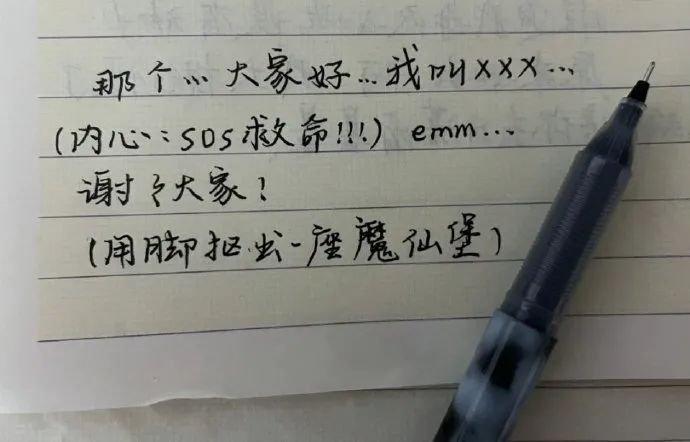 那个… 大家好…我叫XXX…
(内心:SOS救命!!!) emm…
谢々大家!
(用脚抠出一座魔仙堡)